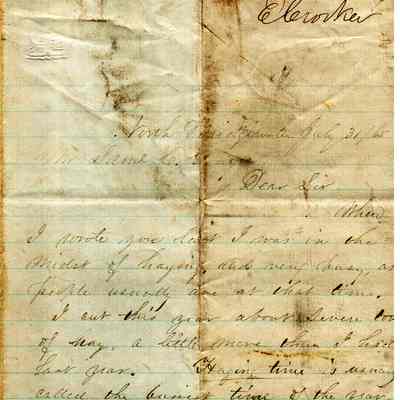 E Crocker
North July 31
Dear Sir
When
I wrote you last I was in the
midst of haying, and very busy, as
people usually are at that time.
I cut this year about seven ton
of hay, a little more than I had
last year. Haying time is usually
called the busiest time of the year